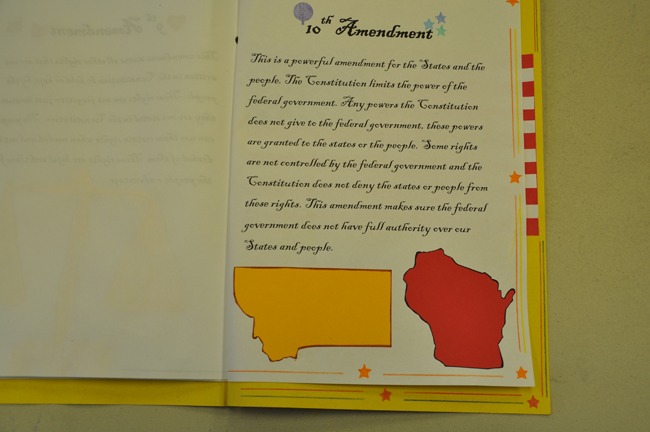 10th Amendment
This is a powerful amendment for the States and the
people. The Constitution limits the power of the
federal government. Any powers the Constitution
does not give to the federal government, these powers
are granted to the states or the people. Some rights
are not controlled by the federal government and the
Constitution does not deny the states or people from
these rights. This amendment makes sure the federal
government does not have full authority over our
States and people.